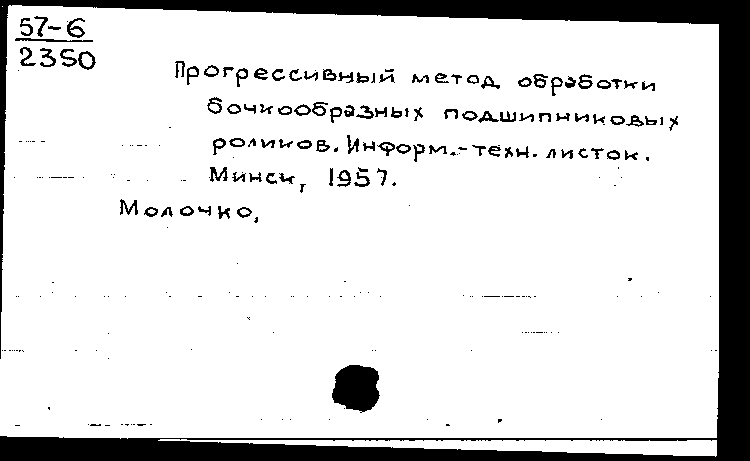 57-6
2350
Прогрессивный метод обработки
бочкообразных подшипниковых
роликов. Информ.-техн. листок.
Минск, 1957.
Молочко,